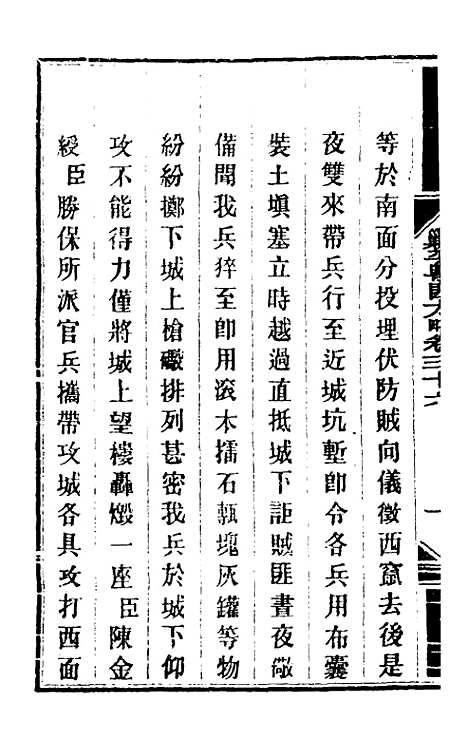 等於南面分投埋伏防賊向儀徵西竄去後是
夜雙來帶兵行至近城坑塹卽令各兵用布囊
裝土塡塞立時越過直抵城下詎賊匪晝夜儆
備聞我兵猝至卽用滾木擂石瓶塊灰鑵等物
紛紛擲下城上槍礮排列甚密我兵於城下仰
攻不能得力僅將城上望樓轟燬一座臣陳金
綬臣勝保所派官兵攜帶攻城各具攻打西面
方略卷三十六
一